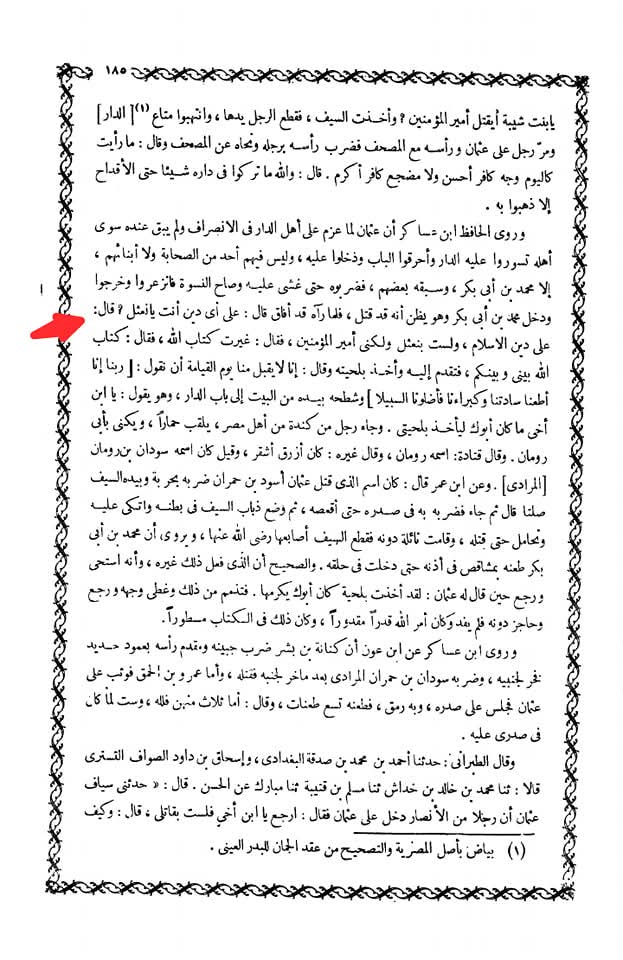 ١٨٥
يابنت شيبة أيقتل أمير المؤمنين ؟ وأخذت السيف ، فقطع الرجل يدها ، وانتهبوا متاع (١) [ الدار ]
ومرّ رجل على عثمان ورأسه مع المصحف فضرب رأسه برجله ونحاه عن المصحف وقال : ما رأيت
كاليوم وجه كافر أحسن ولا مضجع كافر أكرم . قال : والله ما تركوا فى داره شيئا حتى الأقداح
إلا ذهبوا به .
وروى الحافظ ابن عساكر أن عثمان لما عزم على أهل الدار فى الانصراف ولم يبق عنده سوى
أهله تسوروا عليه الدار وأحرقوا الباب ودخلوا عليه ، وليس فيهم أحد من الصحابة ولا أبنائهم ،
إلا محمد بن أبى بكر ، وسبقه بعضهم ، فضربوه حتى غشى عليه وصاح النسوة فانزعروا وخرجوا
ودخل محمد بن أبى بكر وهو يظن أنه قد قتل ، فلما رآه قد أفاق قال : على أى دين أنت يانعثل ؟ قال :
على دين الاسلام ، ولست بنعثل ولكنى أمير المؤمنين ، فقال : غيرت كتاب الله ، فقال : كتاب
الله بينى وبينكم ، فتقدم إليه وأخذ بلحيته وقال : إنا لا يقبل منا يوم القيامة أن نقول : [ ربنا إنا
أطعنا سادتنا وكبراءنا فأضلونا السبيلا ] وشطحه بيده من البيت إلى باب الدار ، وهو يقول : يا ابن
أخى ما كان أبوك ليأخذ بلحيتى . وجاء رجل من كندة من أهل مصر ، يلقب حماراً ، ويكنى بأبى
رومان . وقال قتادة : اسمه رومان ، وقال غيره : كان أزرق أشقر ، وقيل كان اسمه سودان بن رومان
[المرادى] . وعن ابن عمر قال : كان اسم الذى قتل عثمان أسود بن حمران ضربه بحربة وبيده السيف
صلتا قال ثم جاء فضربه به فى صدره حتى أقعصه ، ثم وضع ذباب السيف فى بطنه واتكى عليه
وتحامل حتى قتله ، وقامت نائلة دونه فقطع السيف أصابعها رضى الله عنها ، ويروى أن محمد بن أبى
بكر طعنه بمشاقص فى أذنه حتى دخلت فى حلقه . والصحيح أن الذى فعل ذلك غيره ، وأنه استحى
ورجع حين قال له عثمان : لقد أخذت بلحية كان أبوك يكرمها . فتذمم من ذلك وغطى وجهه ورجع
وحاجز دونه فلم يفد وكان أمر الله قدراً مقدوراً ، وكان ذلك فى الكتاب مسطوراً .
وروى ابن عساكر عن ابن عون أن كنانة بن بشر ضرب جبينه ومقدم رأسه بعمود حديد
فخر لجنبيه ، وضربه سودان بن حمران المرادى بعد ماخر لجنبه فقتله ، وأما عمرو بن الحمق فوثب على
عثمان فجلس على صدره ، وبه رمق ، فطعنه تسع طعنات ، وقال : أما ثلاث منهن فلله ، وست لما كان
فى صدرى عليه .
وقال الطبرانى : حدثنا أحمد بن محمد بن صدقة البغدادى ، وإسحاق بن داود الصواف القسترى
قالا : ثنا محمد بن خالد بن خداش ثنا مسلم بن قتيبة ثنا مبارك عن الحسن . قال : « حدثنى سياف
عثمان أن رجلا من الأنصار دخل على عثمان فقال : ارجع يا ابن أخى فلست بقاتلى ، قال : وكيف
(١) بياض بأصل المصرية والتصحيح من عقد الجمان للبدر العينى .